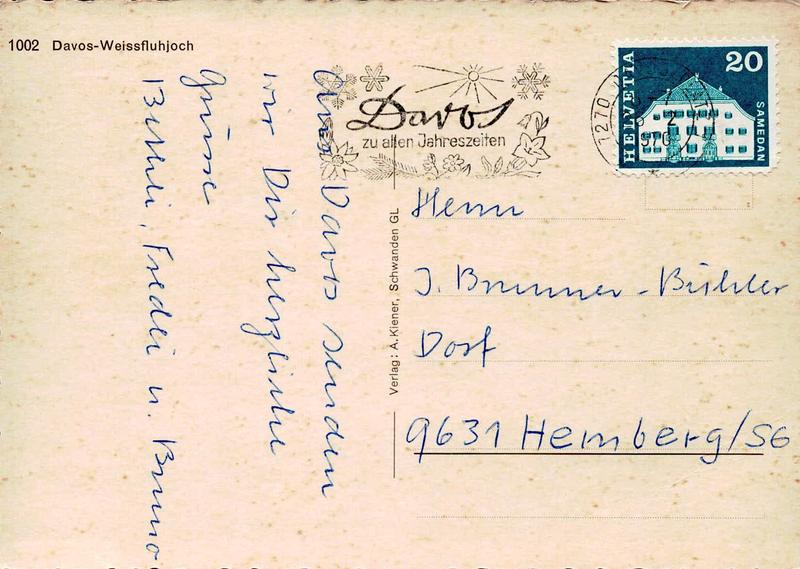 1002 Davos-Weissfluhjoch
Aus Davos senden
wir Dir herzliche
Grüsse
Bethli, Fredi u. Bruno
Davos
zu allen Jahreszeiten
1270
HELVETIA
20
SAMEDAN
Verlag: A. Kiener, Schwanden GL
Herrn
J. Brunner-Bühler
Dorf
9631 Hemberg/SG